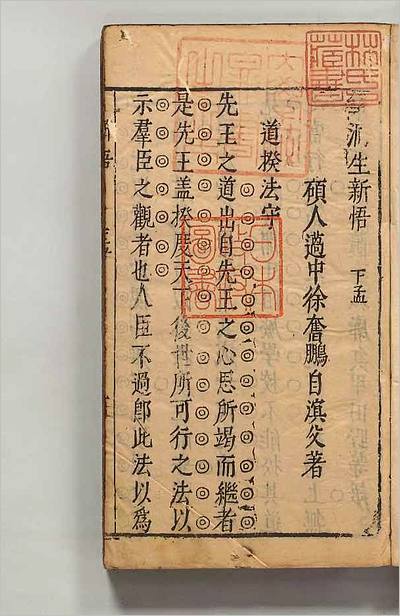 林氏藏書
洞生新悟 下孟
碩人邁中徐奮鵬自溟父著
道揆法守
先王之道出自先王之心思所竭而繼者
是先王盖揆度天下後世所可行之法以
示羣臣之觀者也人臣不過卽此法以爲